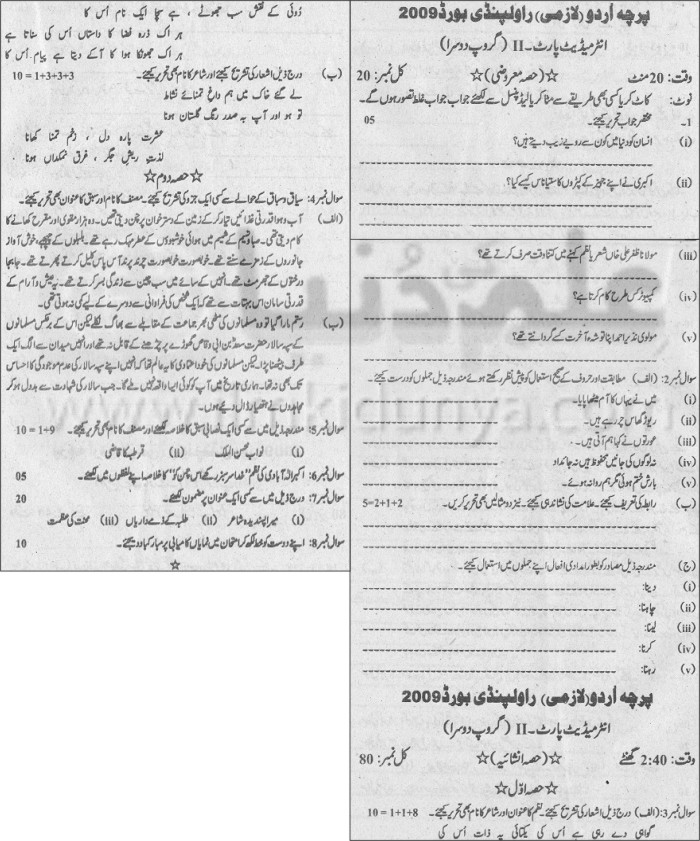 پرچہ اُردو (لازمی) راولپنڈی بورڈ 2009
انٹرمیڈیٹ پارٹ۔ II (گروپ دوسرا)
وقت: 20 منٹ ☆(حصہ معروضی)☆ کل نمبر: 20
نوٹ: کاٹ کر یا کسی بھی طریقے سے مٹا کر یا لیڈ پنسل سے لکھئے جواب جواب غلط تصور ہوں گے۔
1۔ مختصر جواب تحریر کیجئے۔ 05
(i) انسان کو دنیا میں کون سے رویے زیب دیتے ہیں؟
(ii) اکبری نے اپنے جہیز کے کپڑوں کا ستیاناس کیسے کیا؟
(iii) مولانا ظفر علی خاں شعر یا نظم کہنے میں کتنا وقت صرف کرتے تھے؟
(iv) کمپیوٹر کس طرح کام کرتا ہے؟
(v) مولوی نذیر احمد اپنا توشہ آخرت کسے گردانتے تھے؟
سوال نمبر 2: (الف) مطابقت اور حروف کے صحیح استعمال کو پیش نظر رکھتے ہوئے مندرجہ ذیل جملوں کو درست کیجئے۔
(i) میں نے یہاں کا آم میٹھا پایا۔
(ii) ریوڑ گھاس چر رہے ہیں۔
(iii) عورتوں نے کہا ہم آتی ہیں۔
(iv) نہ لوگوں کی جانیں محفوظ ہیں نہ جائداد
(v) بارش ختم ہوئی مگر ہم روانہ ہوئے۔
(ب) رابطہ کی تعریف کیجئے۔ علامت کی نشاندہی کیجئے۔ نیز دو مثالیں بھی تحریر کریں۔ 5=2+1+2
(ج) مندرجہ ذیل مصادر کو بطور امدادی افعال اپنے جملوں میں استعمال کیجئے۔
(i) دینا:
(ii) چاہنا:
(iii) لینا:
(iv) کرنا:
(v) رہنا:
پرچہ اُردو (لازمی) راولپنڈی بورڈ 2009
انٹرمیڈیٹ پارٹ۔ II (گروپ دوسرا)
وقت: 2:40 گھنٹے ☆(حصہ انشائیہ)☆ کل نمبر: 80
☆حصہ اوّل☆
سوال نمبر 3: (الف) درج ذیل اشعار کی تشریح کیجئے۔ نظم کا عنوان اور شاعر کا نام بھی تحریر کیجئے۔ 10 = 1+1+8
گواہی دے رہی ہے اُس کی یکتائی پہ ذات اُس کی
دُوئی کے نقش سب جھوٹے، ہے سچا ایک نام اُس کا
ہر اک ذرہ فضا کا داستاں اُس کی سناتا ہے
ہر اک جھونکا ہوا کا آکے دیتا ہے پیام اُس کا
(ب) درج ذیل اشعار کی تشریح کیجئے اور شاعر کا نام بھی تحریر کیجئے۔ 10 = 1+3+3+3
لے گئے خاک میں ہم داغِ تمنائے نشاط
تو ہو اور آپ بہ صد رنگ گلستاں ہونا
عشرت پارہ دل، زخم تمنا کھانا
لذت ریش جگر، غرق نمکداں ہونا
☆حصہ دوم☆
سوال نمبر 4: سیاق و سباق کے حوالے سے کسی ایک جزو کی تشریح کیجئے۔ مصنف کا نام اور سبق کا عنوان بھی تحریر کیجئے۔
(الف) آب و ہوا قدرتی غذائیں تیار کر کے زمین کے دسترخوان پر چن دیتی تھیں۔ وہ ہزار مقوی اور مفرح کھانے کا
کام دیتی تھی۔ صبا و نسیم کے شمیم میں ہوائی خوشبوؤں کے عطر مہک رہے تھے۔ بلبلوں کے چہچہے، خوش آواز
جانوروں کے زمزمے سنتے تھے۔ خوبصورت خوبصورت چرند پرند آس پاس کلیل کرتے پھرتے تھے۔ جا بجا
درختوں کے جھرمٹ تھے۔ انہیں کے سائے میں سب چین سے زندگی بسر کرتے تھے۔ یہ عیش و آرام کے
قدرتی سامان اس بہتات سے تھے کہ ایک شخص کی فراوانی سے دوسرے کے لیے کمی نہ ہوتی تھی۔
(ب) رستم مارا گیا تو وہ مسلمانوں کی مٹھی بھر جماعت کے مقابلے سے بھاگ نکلے لیکن اس کے برعکس مسلمانوں
کے سپہ سالار حضرت سعد بن ابی وقاص گھوڑے پر چڑھنے کے قابل نہ تھے اور انہیں میدان سے الگ ایک
طرف بیٹھنا پڑا لیکن مسلمانوں کی خود اعتمادی کا یہ عالم تھا کہ انہیں اپنے سپہ سالار کی عدم موجودگی کا احساس
تک بھی نہ تھا۔ ہماری تاریخ میں آپ کو کوئی ایسا واقعہ نہیں ملے گا۔ جب سالار کی شہادت سے بددل ہو کر
مجاہدوں نے ہتھیار ڈال دیے ہوں۔
سوال نمبر 5: مندرجہ ذیل میں سے کسی ایک نصابی سبق کا خلاصہ لکھئے اور مصنف کا نام بھی تحریر کیجئے۔ 10 = 1+9
(i) نواب محسن الملک (ii) قرطبہ کا قاضی
سوال نمبر 6: اکبر الٰہ آبادی کی نظم "خدا سرسبز رکھے اس چمن کو" کا خلاصہ اپنے لفظوں میں لکھئے۔ 05
سوال نمبر 7: درج ذیل میں سے کسی ایک عنوان پر مضمون لکھئے۔ 20
(i) میرا پسندیدہ شاعر (ii) طلبہ کے ذمے داریاں (iii) محنت کی عظمت
سوال نمبر 8: اپنے دوست کو خط لکھ کر امتحان میں نمایاں کامیابی پر مبارکباد دیجئے۔ 10
☆
علم دُنیا
www.ilmkidunya.com